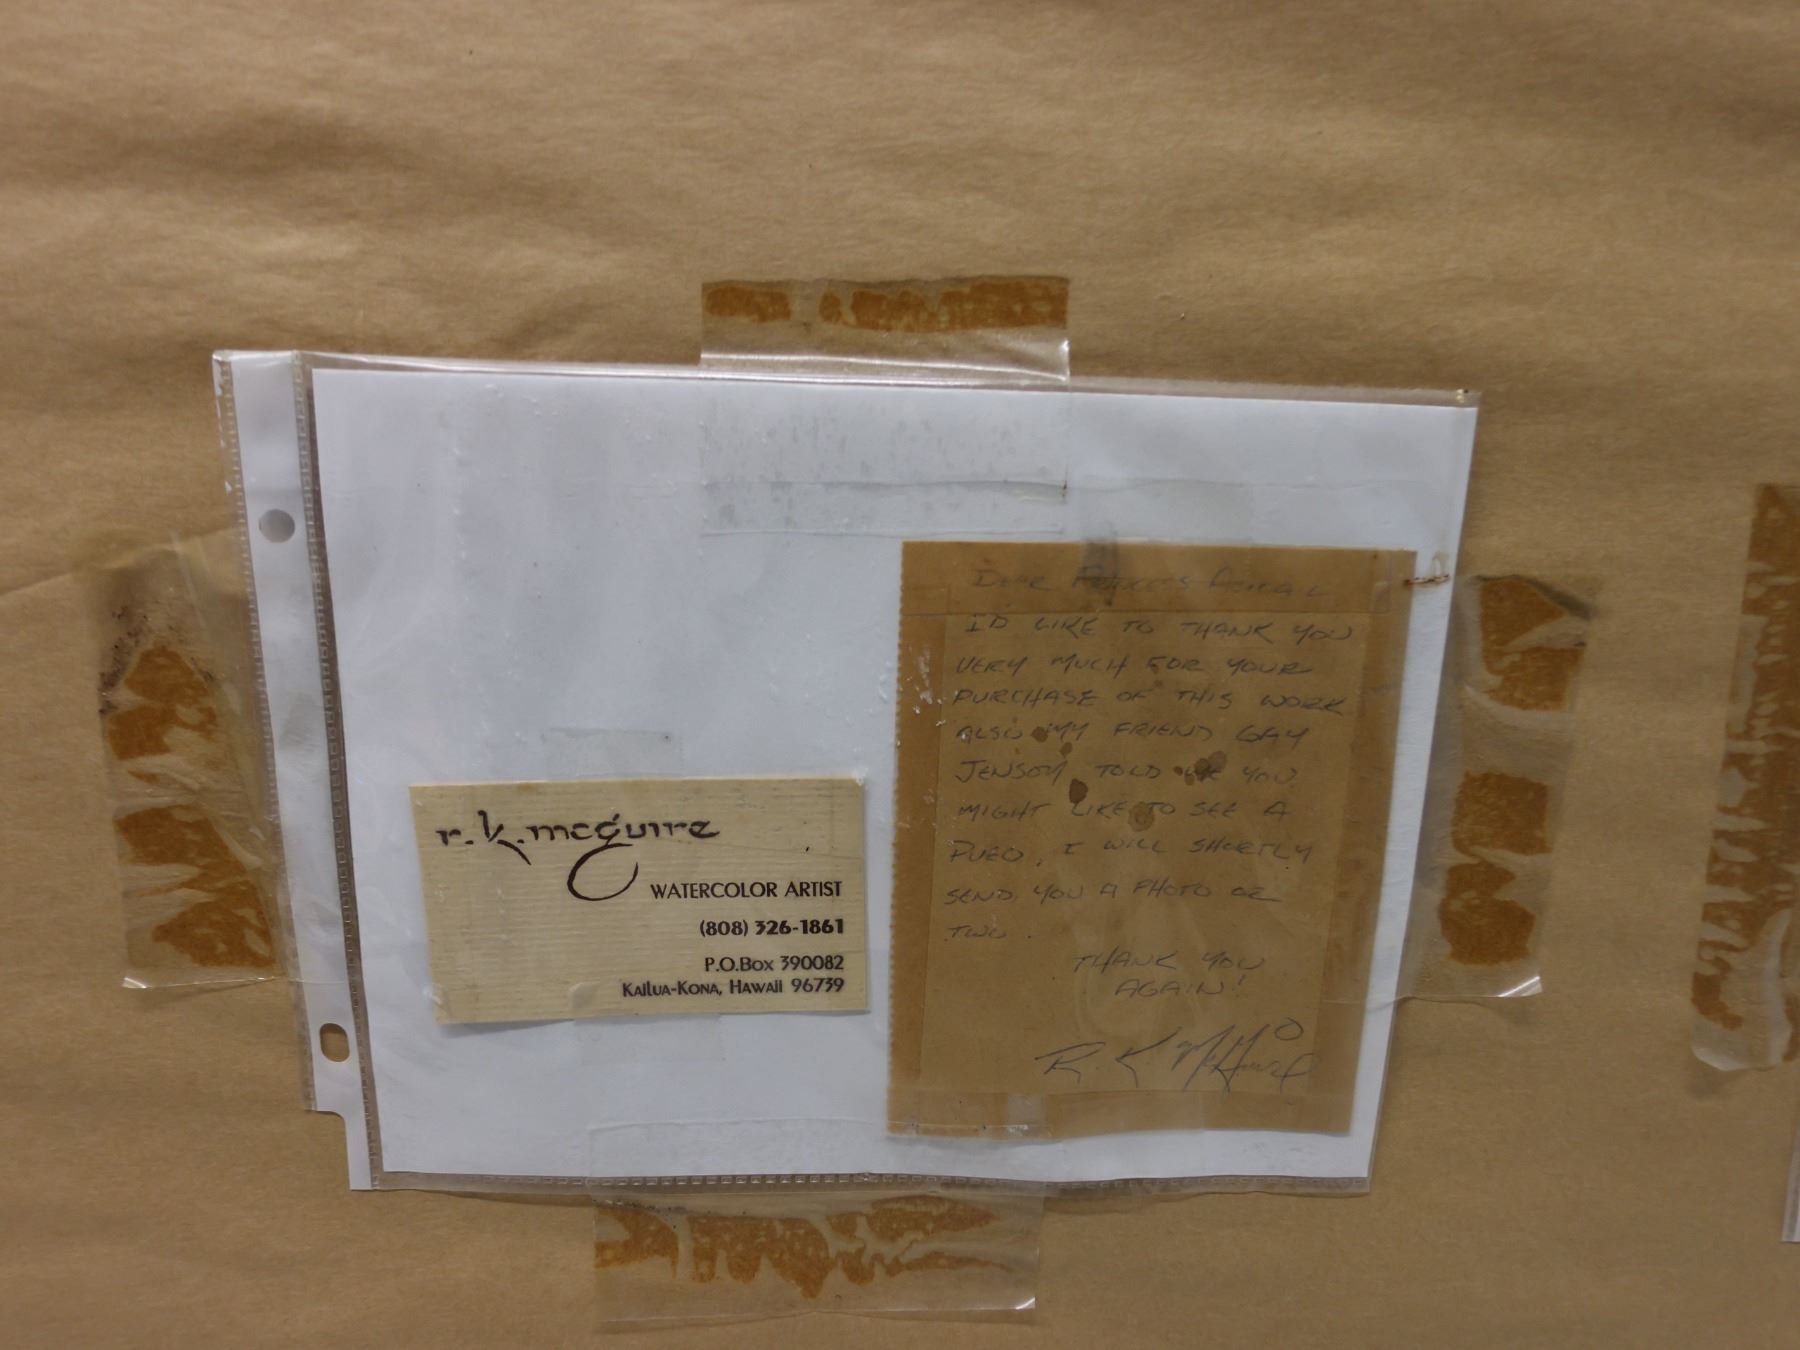 r. k. mcguire
WATERCOLOR ARTIST
(808) 326-1861
P.O.Box 390082
Kailua-Kona, Hawaii 96739
DEAR PRINCESS ABIGAIL
I'D LIKE TO THANK YOU
VERY MUCH FOR YOUR
PURCHASE OF THIS WORK
ALSO MY FRIEND GAY
JENSON TOLD ME YOU
MIGHT LIKE TO SEE A
PUEO, I WILL SHORTLY
SEND YOU A PHOTO OR
TWO.
THANK YOU
AGAIN!
R. K. McGuire